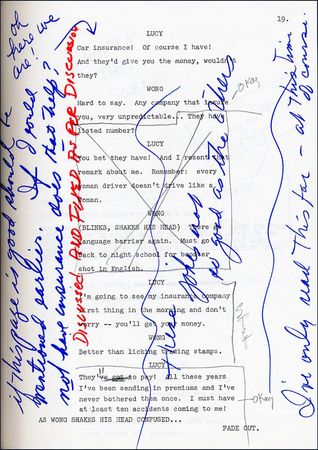 19.
LUCY
Car insurance! Of course I have!
And they'd give you the money, wouldn't
they?
WONG
Hard to say. Any company that insure
you, very unpredictable... They have
listed number?
LUCY
You bet they have! And I resent that
remark about me. Remember: every
woman driver doesn't drive like a
woman.
WONG
(BLINKS, SHAKES HIS HEAD) There
language barrier again. Must go
back to night school for
shot in English.
LUCY
I'm going to see my insurance company
first thing in the morning and don't
worry -- you'll get your money.
WONG
Better than licking trading stamps.
LUCY
They've got so pay! All these years
I've been sending in premiums and I've
never bothered them once. I must have
at least ten accidents coming to me!
AS WONG SHAKES HIS HEAD CONFUSED...
FADE OUT.
if this page is good should be
mentioned earlier. If I could
not have insurance does that help?
oh
here we
are!
Discussed AND FIXED AS PER Discussion
These jokes not
as good as the others
OKay
OKay
I've only read this far - at this time
of course.